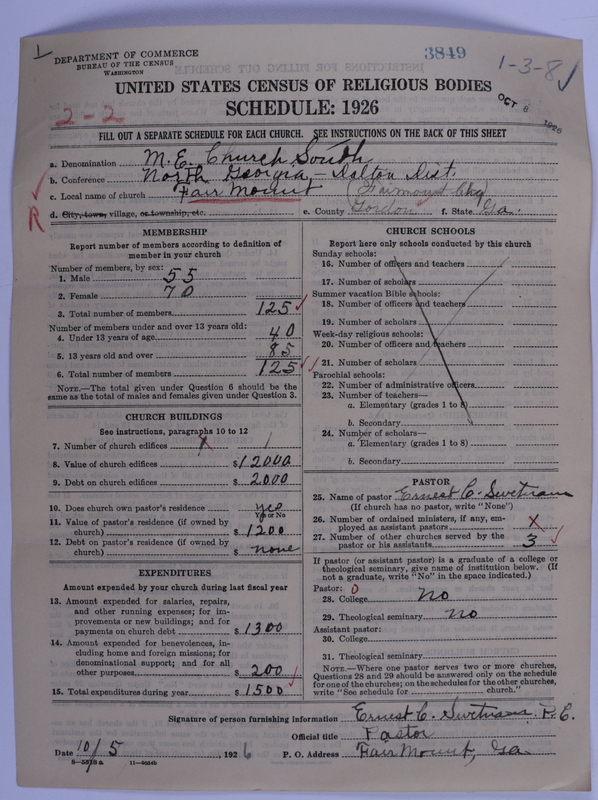 1
DEPARTMENT OF COMMERCE
BUREAU OF THE CENSUS
WASHINGTON
3849
1-3-8
UNITED STATES CENSUS OF RELIGIOUS BODIES
OCT 6 1926
2-2
SCHEDULE: 1926
FILL OUT A SEPARATE SCHEDULE FOR EACH CHURCH. SEE INSTRUCTIONS ON THE BACK OF THIS SHEET
a. Denomination M. E. Church South
b. Conference North Georgia - Dalton Dist.
c. Local name of church Fair Mount (Fairmount
R
d. City, town, village, or township, etc. e. County Gordon f. State Ga.
MEMBERSHIP
Report number of members according to definition of
member in your church
Number of members, by sex:
1. Male 55
2. Female 70
3. Total number of members 125
Number of members under and over 13 years old:
4. Under 13 years of age 40
5. 13 years old and over 85
6. Total number of members 125
NOTE.—The total given under Question 6 should be the
same as the total of males and females given under Question 3.
CHURCH BUILDINGS
See instructions, paragraphs 10 to 12
7. Number of church edifices 1
8. Value of church edifices $12000
9. Debt on church edifices $2000
10. Does church own pastor's residence yes
Yes or No
11. Value of pastor's residence (if owned by
church) $1200
12. Debt on pastor's residence (if owned by
church) $none
EXPENDITURES
Amount expended by your church during last fiscal year
13. Amount expended for salaries, repairs,
and other running expenses; for im-
provements or new buildings; and for
payments on church debt $1300
14. Amount expended for benevolences, in-
cluding home and foreign missions; for
denominational support; and for all
other purposes $200
15. Total expenditures during year $1500
CHURCH SCHOOLS
Report here only schools conducted by this church
Sunday schools:
16. Number of officers and teachers
17. Number of scholars
Summer vacation Bible schools:
18. Number of officers and teachers
19. Number of scholars
Week-day religious schools:
20. Number of officers and teachers
21. Number of scholars
Parochial schools:
22. Number of administrative officers
23. Number of teachers—
a. Elementary (grades 1 to 8)
b. Secondary
24. Number of scholars—
a. Elementary (grades 1 to 8)
b. Secondary
PASTOR
25. Name of pastor Ernest C. Swetnam
(If church has no pastor, write "None")
26. Number of ordained ministers, if any, em-
ployed as assistant pastors x
27. Number of other churches served by the
pastor or his assistants 3
If pastor (or assistant pastor) is a graduate of a college or
theological seminary, give name of institution below. (If
not a graduate, write "No" in the space indicated.)
Pastor: 0
28. College no
29. Theological seminary no
Assistant pastor:
30. College
31. Theological seminary
NOTE.—Where one pastor serves two or more churches,
Questions 28 and 29 should be answered only on the schedule
for one of the churches; on the schedules for the other churches,
write "See schedule for church."
Signature of person furnishing information Ernest C. Swetnam. P. C.
Official title Pastor
Date 10/5, 1926 P. O. Address Fair Mount, Ga
8—5518 a 11—9064b